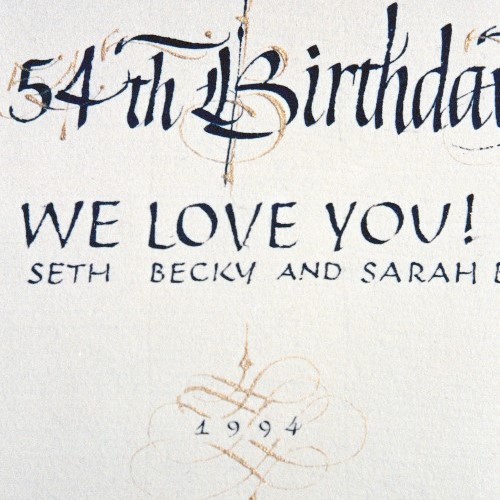 54th Birthda
WE LOVE YOU!
SETH BECKY AND SARAH
1994